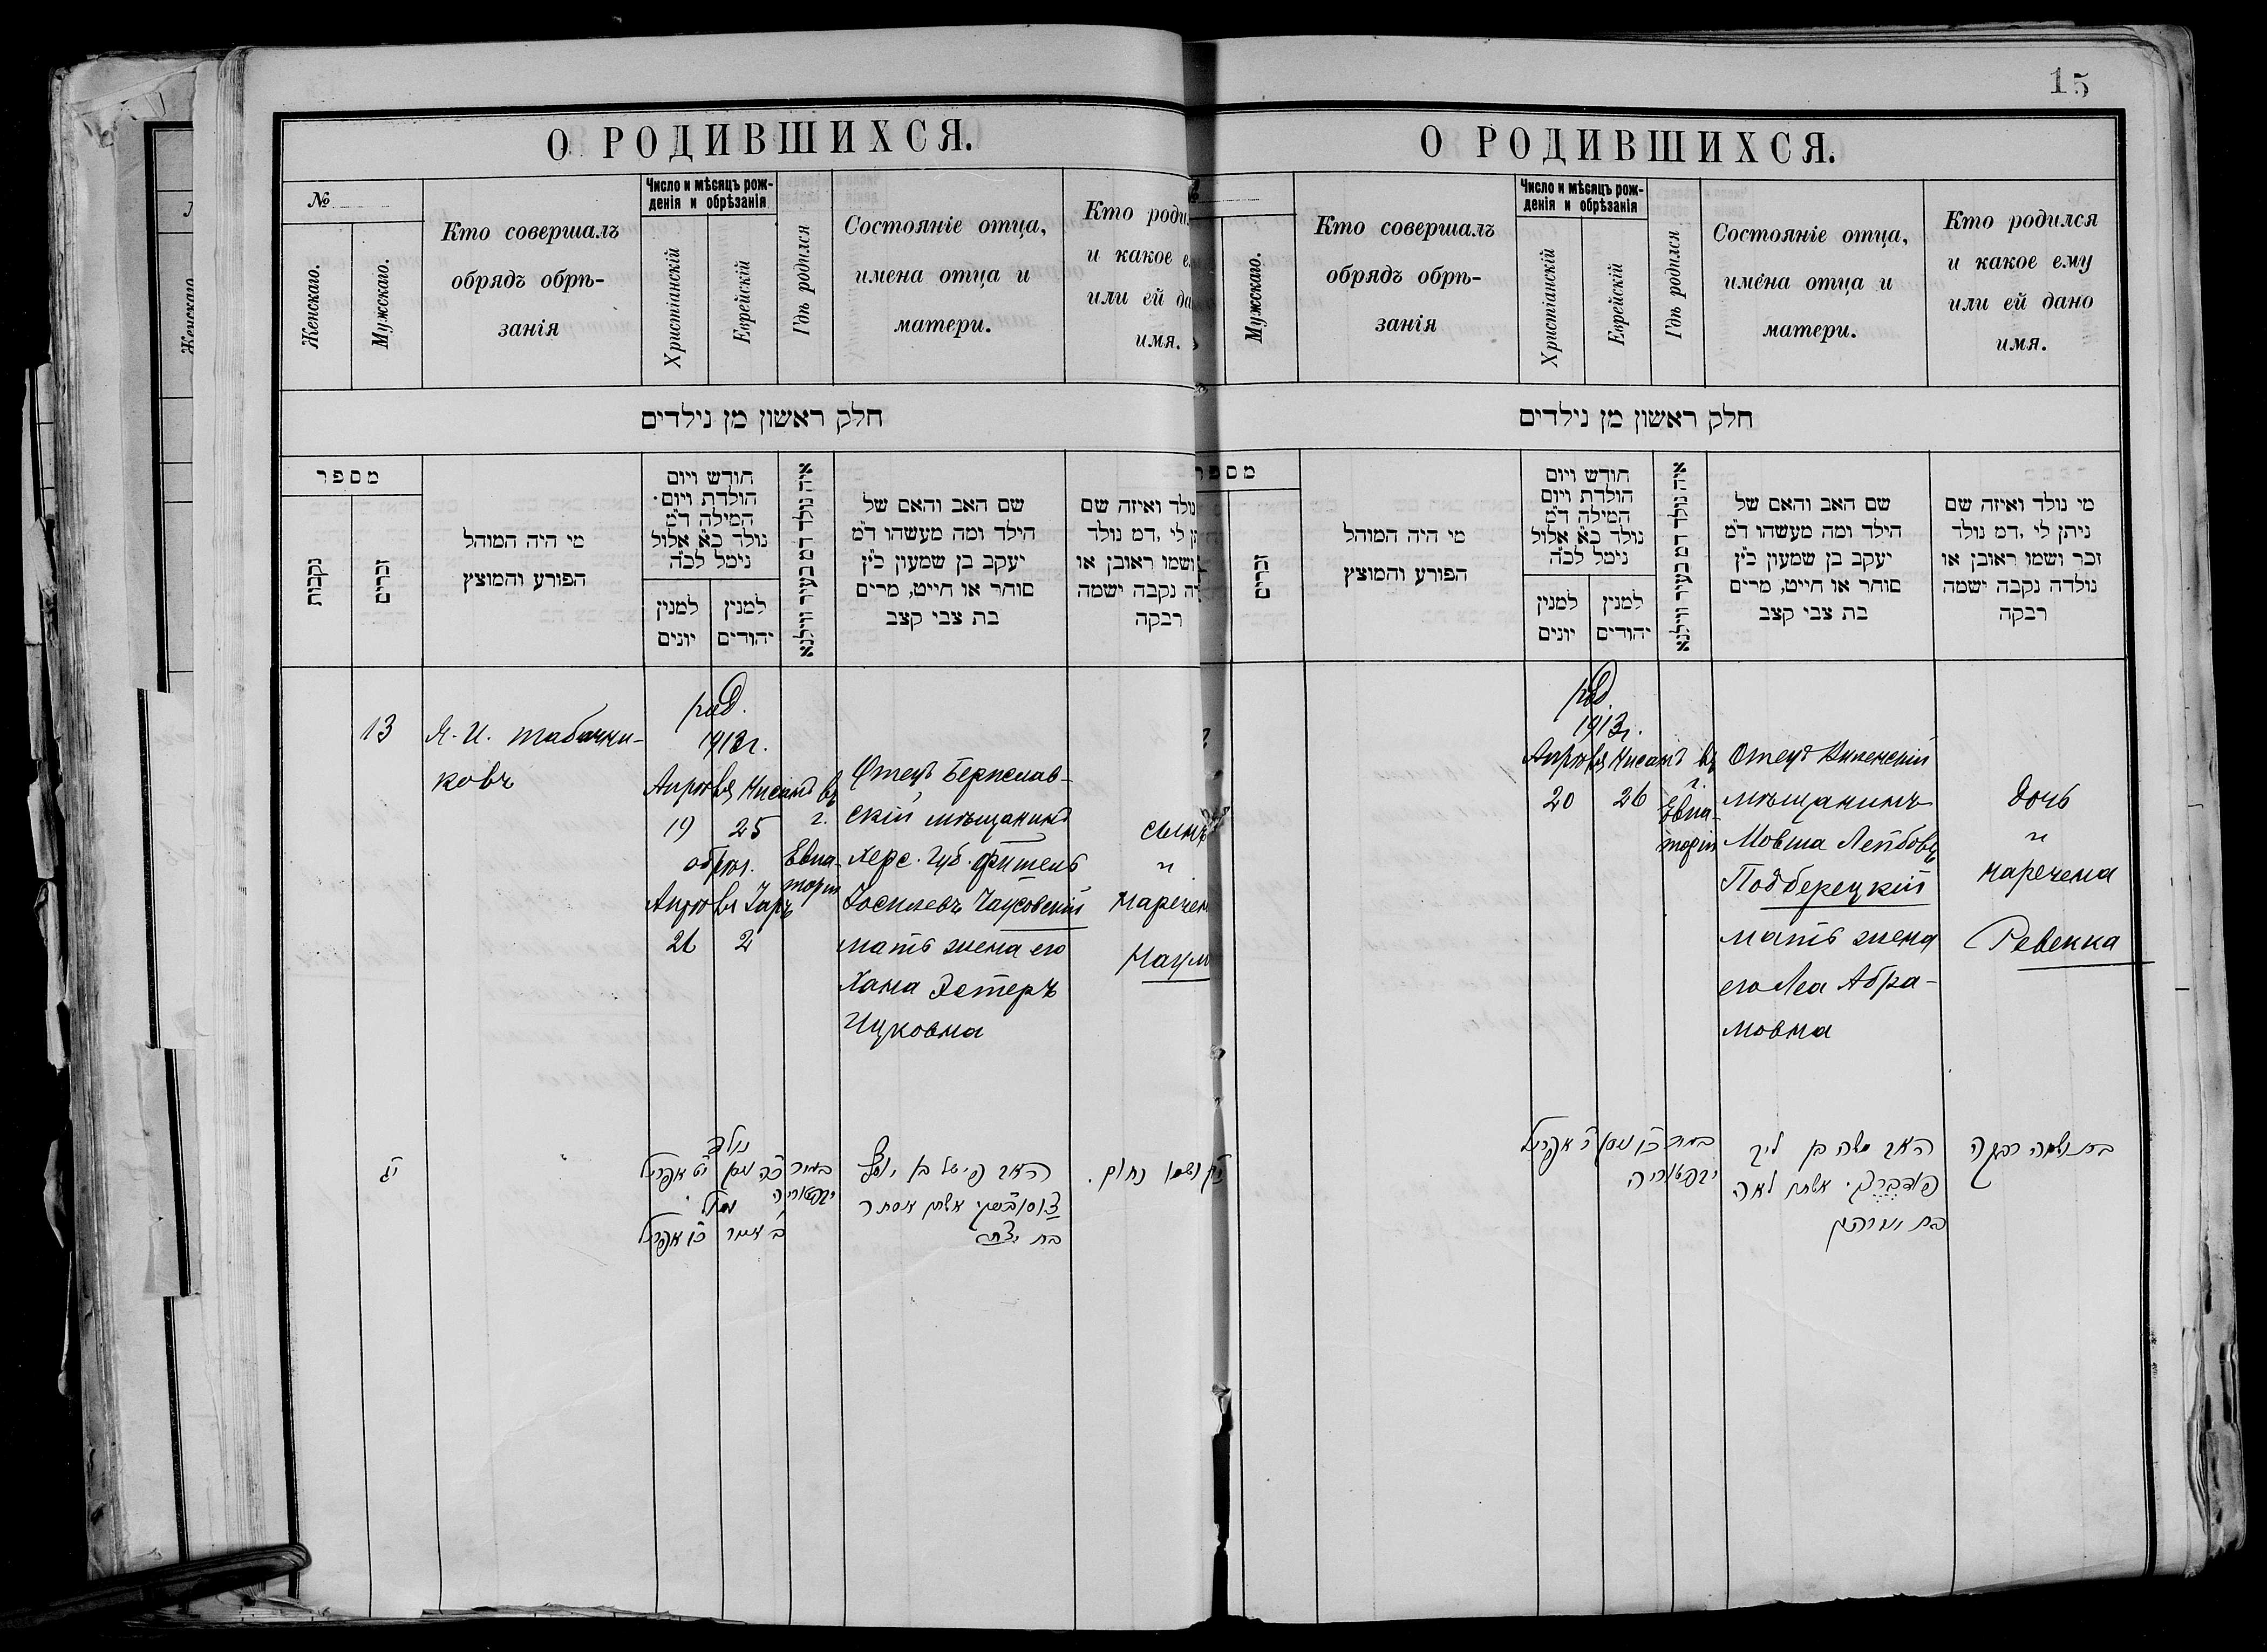 15
О РОДИВШИХСЯ.
№
Женскаго.
Мужскаго.
Кто совершалъ
обрядъ обрѣ-
занія
Число и мѣсяцъ рож-
денія и обрѣзанія
Христіанскій
Еврейскій
Гдѣ родился
Состояніе отца,
имена отца и
матери.
Кто роди
и какое е
или ей да
имя.
חלק ראשון מן נילדים
מספר
נקבות
זכרים
מי היה המוהל
הפורע והמוצץ
חודש ויום
הולדת ויום
המילה ד״מ
נולד כ״א אלול
נימל לכ״ה
למנין
יונים
למנין
יהודים
איה נולד דמ בעיר ווילנא
שם האב והאם של
הילד ומה מעשהו ד״מ
יעקב בן שמעון כ״ץ
סוחר או חייט, מרים
בת צבי קצב
נולד ואיזה שם
תן לי ,דמ נולד
ושמו ראובן או
דה נקבה ישמה
רבקה
13
Я. И. Табачни-
ковъ
род.
1913 г.
Апрѣля Нисанъ
19 25
обрѣз.
Апрѣля Іаръ
26 2
въ
г.
Евпа-
торіи
Отецъ Берислав-
скій мѣщанинъ
Херс. губ. Фишель
мать жена его
Хана Эстеръ
Ицковна
сынъ
и
наречен
Наум
י״ג
נולד
י״ט אפריל
כ״ה ניסן
נימול
כ״ו אפריל
ב׳ אייר
בעיר
יבפטוריה
האב פישל בן יוסף
אשתו אסתר
בת יצחק
ושמו נחום.
О РОДИВШИХСЯ.
Мужскаго.
Кто совершалъ
обрядъ обрѣ-
занія
Число и мѣсяцъ рож-
денія и обрѣзанія
Христіанскій
Еврейскій
Гдѣ родился
Состояніе отца,
имена отца и
матери.
Кто родился
и какое ему
или ей дано
имя.
חלק ראשון מן נילדים
מספר
זכרים
מי היה המוהל
הפורע והמוצץ
חודש ויום
הולדת ויום
המילה ד״מ
נולד כ״א אלול
נימל לכ״ה
למנין
יונים
למנין
יהודים
איה נולד דמ בעיר ווילנא
שם האב והאם של
הילד ומה מעשהו ד״מ
יעקב בן שמעון כ״ץ
סוחר או חייט, מרים
בת צבי קצב
מי נולד ואיזה שם
ניתן לי ,דמ נולד
זכר ושמו ראובן או
נולדה נקבה ישמה
רבקה
род.
1913 г.
Апрѣля Нисанъ
20 26
въ
г.
Евпа-
торіи
Отецъ Виленскій
мѣщанинъ
Мовша Лейбовъ
Подберецкій
мать жена
его Леа Абра-
мовна
дочь
и
наречена
Ревекка
כ׳ אפריל
כ״ו ניסן
בעיר
יבפטוריה
האב משה בן ליב
פודברצקי אשתו לאה
בת ושמה רבקה